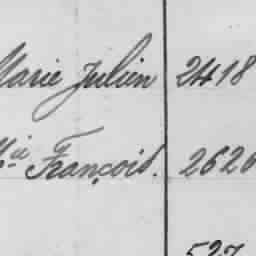 Marie Julien 2418
Mie François. 2626
527